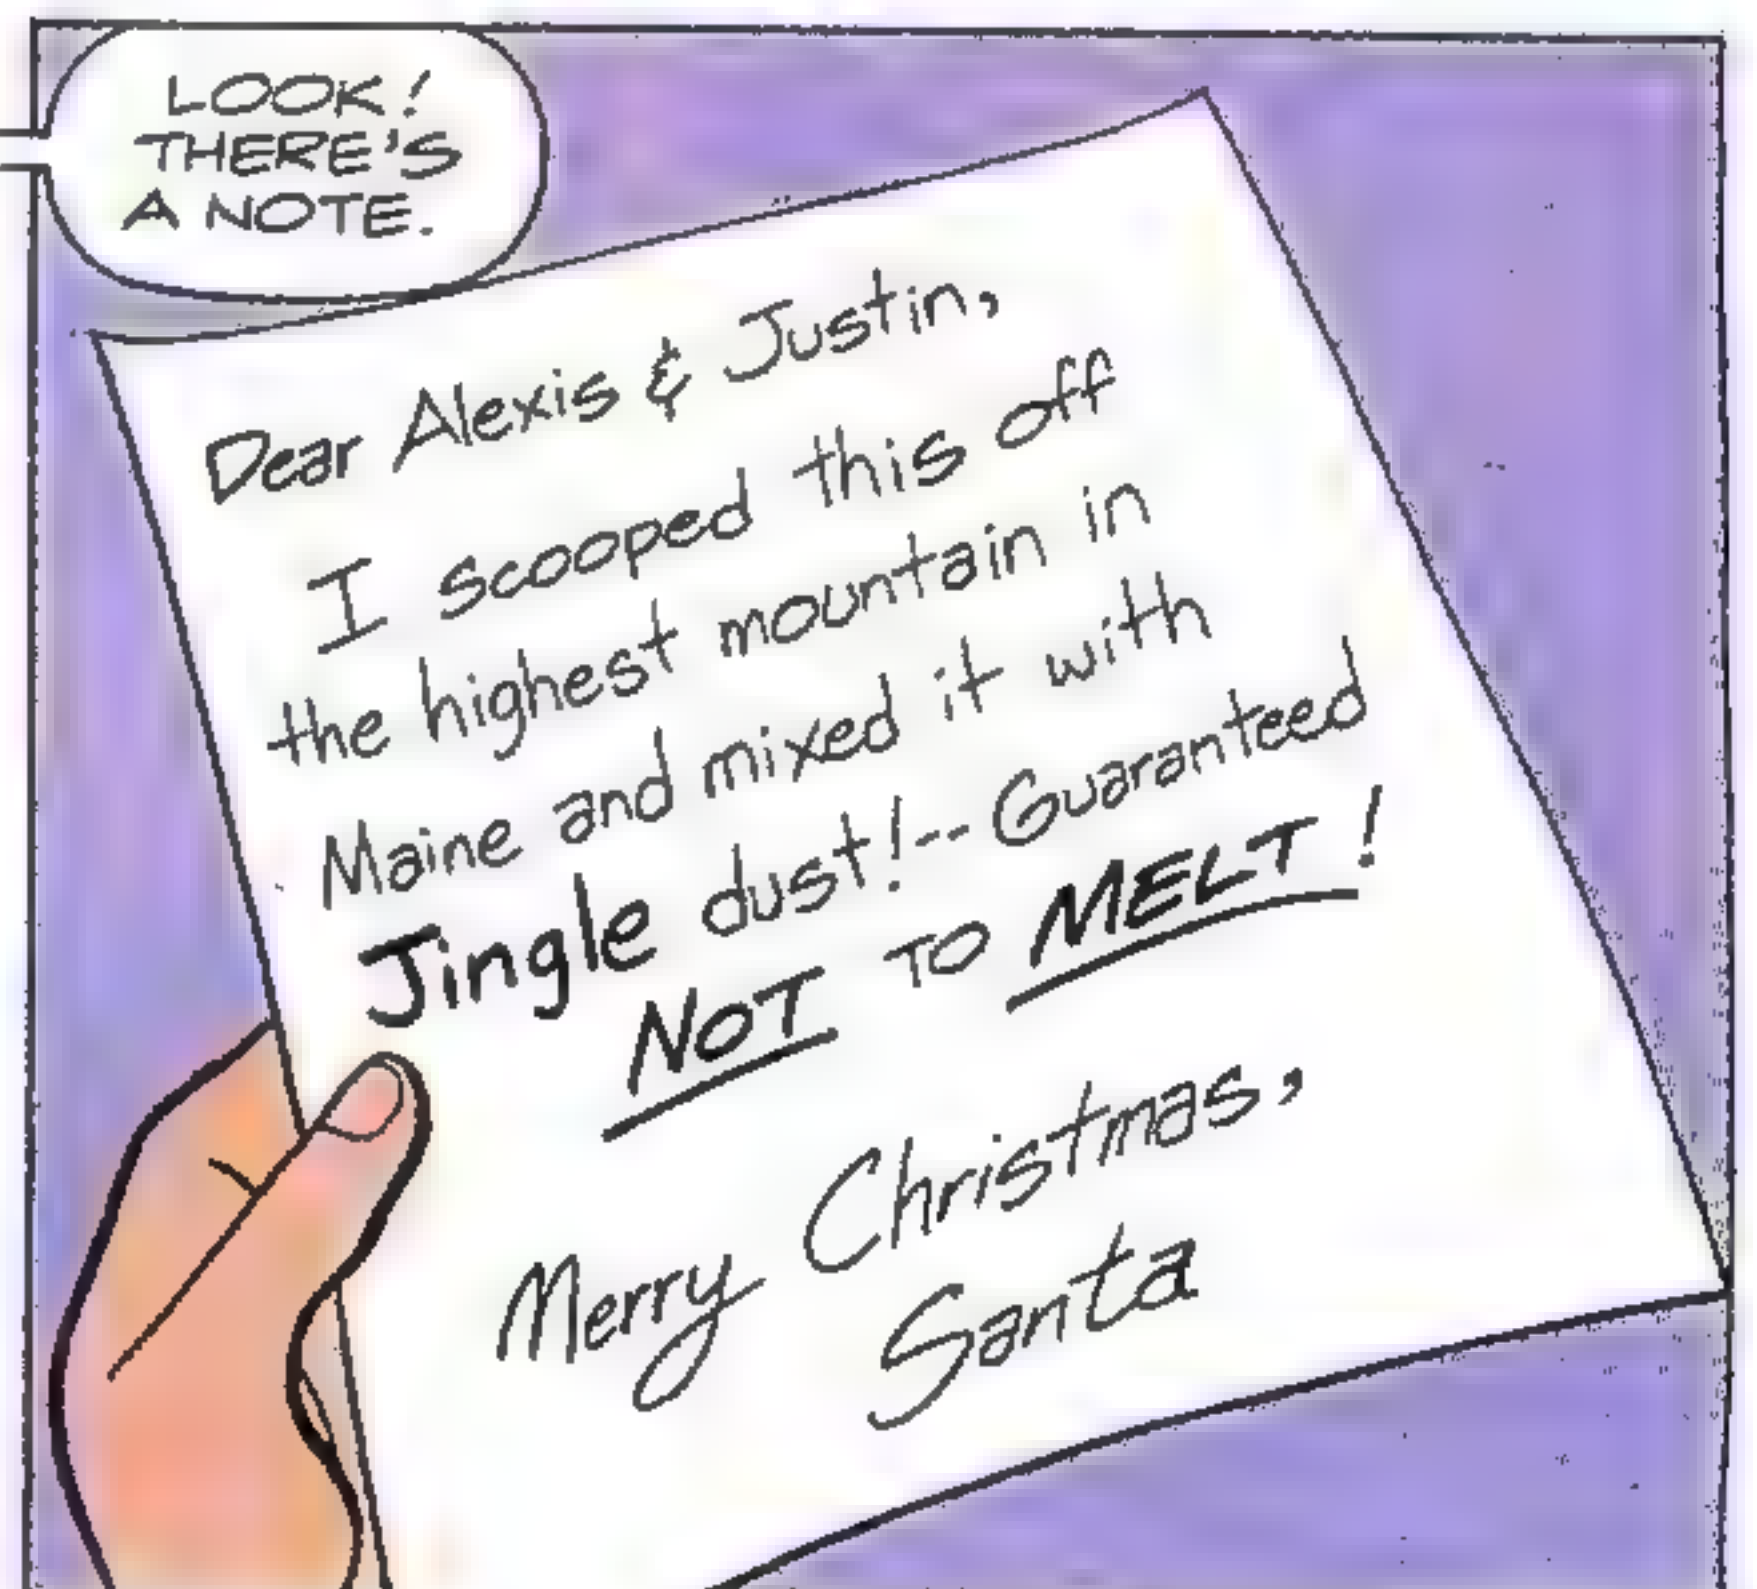 LOOK!
THERE'S
A NOTE.
Dear Alexis & Justin,
I scooped this off
the highest mountain in
Maine and mixed it with
Jingle dust!-- Guaranteed
NOT TO MELT!
Merry Christmas,
Santa